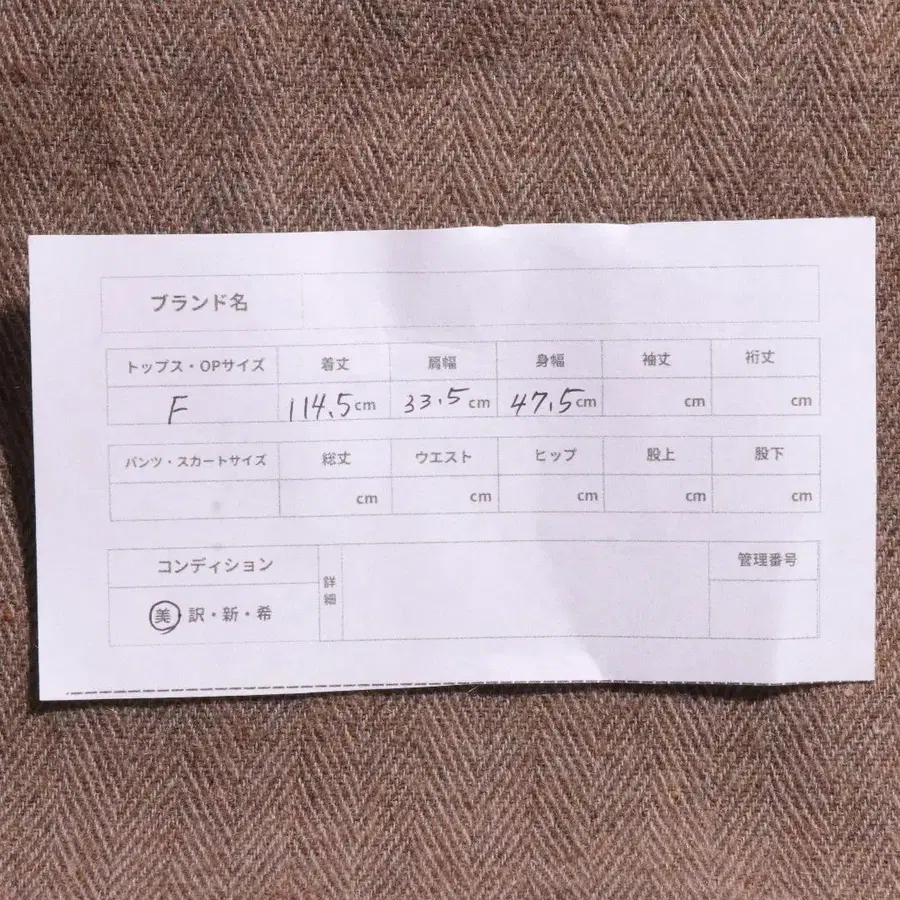 ブランド名
トップス・OPサイズ 着丈 肩幅 身幅 袖丈 裄丈
F 114.5cm 33.5cm 47.5cm cm cm
パンツ・スカートサイズ 総丈 ウエスト ヒップ 股上 股下
cm cm cm cm cm
コンディション 詳細 管理番号
美・訳・新・希